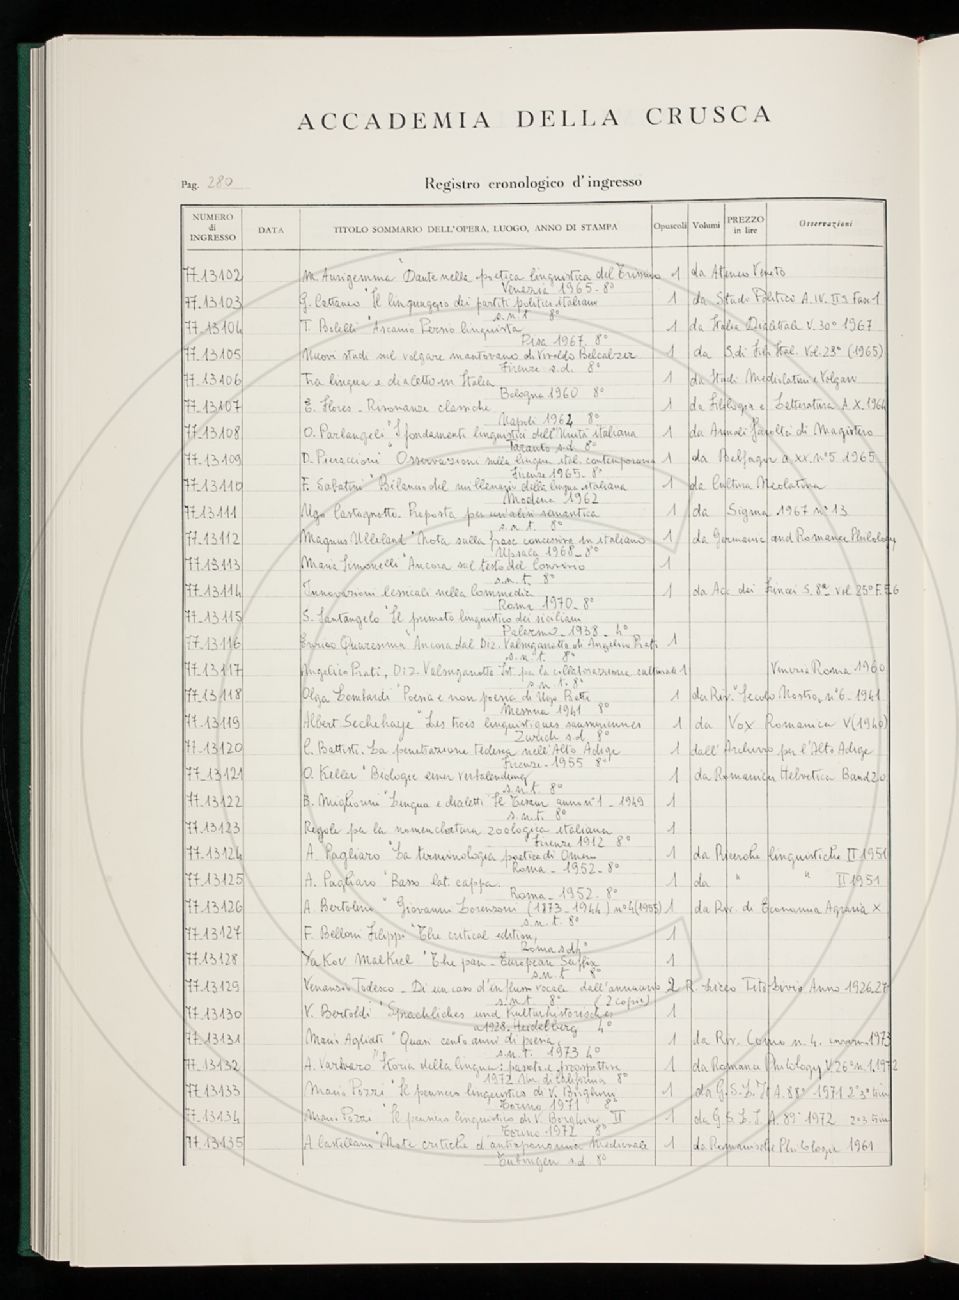 ACCADEMIA DELLA CRUSCA
Pag. 280
Registro cronologico d'ingresso
NUMERO di INGRESSO DATA TITOLO SOMMARIO DELL'OPERA, LUOGO, ANNO DI STAMPA Opuscoli Volumi PREZZO in lire Osservazioni
77-13102 M. Aurigemma "Dante nella poetica linguistica del Trissino 1 da Ateneo Veneto
Venezia 1965- 8°
77-13103 G. Cattaneo "Il linguaggio dei partiti politici italiani 1 da Studi Politici A. IV. II S. Fasc 1
s.n.t 8°
77-13104 T. Bolelli "Ascanio Persio linguista 1 da Italia Dialettale V. 30° 1967
Pisa 1967. 8°
77-13105 Nuovi studi sul volgare mantovano di Vivaldo Belcalzer 1 da S. di Fil. Ital. Vol. 23° (1965)
Firenze s.d. 8°
77-13106 Tra lingua e dialetto in Italia 1 da Studi Mediolatini e Volgari
Bologna 1960 8°
77-13107 E. Flores - Risonanze classiche 1 da Filologia e Letteratura A X. 1964
Napoli 1964 8°
77-13108 O. Parlangeli "I fondamenti linguistici dell'Unità italiana 1 da Annali Facoltà di Magistero
Taranto s.d. 8°
77-13109 D. Pieraccioni "Osservazioni sulla lingua ital. contemporanea 1 da Belfagor a. XX. n°5 1965
Firenze 1965- 8°
77-13110 F. Sabatini "Bilancio del millenario della lingua italiana 1 da Cultura Neolatina
Modena 1962
77-13111 Ugo Castagnotto. Proposta per un'alisi semantica 1 da Sigma 1967 n° 13
s.n.t. 8°
77-13112 Magnus Ulleland "Nota sulla frase concessiva in italiano 1 da Germanic and Romance Philology
Upsala 1968- 8°
77-13113 Maria Simonelli "Ancora sul testo del Convivio 1
s.n.t. 8°
77-13114 Innovazioni lessicali nella Commedia 1 da Acc. dei Lincei S. 8ª vol 25° F. 5.6
Roma 1970- 8°
77-13115 S. Santangelo "Il primato linguistico dei siciliani
Palermo 1938- 4°
77-13116 Enrico Quaresima "Ancora dal Diz. Valsuganotto di Angelico Prati 1
s.n.t. 8°
77-13117 Angelico Prati, Diz. Valsuganotto Ist. per la collaborazione culturale 1 Venezia Roma 1960
s.n.t. 8°
77-13118 Olga Lombardi "Poesia e non poesia di Ugo Betti 1 da Riv. "Secolo Nostro, n°6- 1941
Messina 1941 8°
77-13119 Albert Sechehaye "Les trois linguistiques saussuriennes 1 da Vox Romanica V (1940)
Zurich s.d. 8°
77-13120 C. Battisti. La penetrazione tedesca nell'Alto Adige 1 dall'Archivio per l'Alto Adige
Firenze- 1955 8°
77-13121 O. Keller "Biologie einer Verbalendung 1 da Romanica Helvetica Band 20
s.n.t. 8°
77-13122 B. Migliorini "Lingua e dialetti" Il Tesaur anno n°1 - 1949 1
s.n.t. 8°
77-13123 Regole per la nomenclatura zoologica italiana 1
Firenze 1912 8°
77-13124 A. Pagliaro "La terminologia poetica di Omero 1 da Ricerche linguistiche II 1951
Roma- 1952- 8°
77-13125 A. Pagliaro "Basso lat. cappa. 1 da " " II 1951
Roma- 1952. 8°
77-13126 A. Bertolino "Giovanni Lorenzoni (1873-1944) n°4 (1955) 1 da Riv. di Economia Agraria X
s.n.t. 8°
77-13127 F. Belloni Filippi "The critical edition, 1
Roma s.d. 4°
77-13128 Yakov Malkiel "The pan-European Suffix 1
s.n.t 8°
77-13129 Venanzio Todesco - Di un caso d'influsso vocale dall'annuario 2 R. Liceo Tito Livio Anno 1926.27
s.n.t. 8° (2 copie)
77-13130 V. Bertoldi "Sprachliches und Kulturhistorisches 1
a 1928. Heidelberg 4°
77-13131 Mario Agliati "Quasi cento anni di poesia, 1 da Riv. Como n. 4. inverno 1973
s.n.t. 1973 4°
77-13132 A. Varvaro "Storia della lingua: passato e prospettive 1 da Romance Philology V. 26° n. 1, 1972
1972 Un. di California 8°
77-13133 Mario Pozzi "Il pensiero linguistico di V. Borghini 1 da G. S. L. I. A. 88° 1971 2° 3° trim
Torino 1971 8°
77-13134 Mario Pozzi "Il pensiero linguistico di V. Borghini II 1 da G. S. L. I. A. 89° 1972 2 e 3 trim
Torino 1972 8°
77-13135 A Castellani "Note critiche d'antroponimia Medievale 1 da Romanische Philologie 1961
Tubingen s.d. 8°